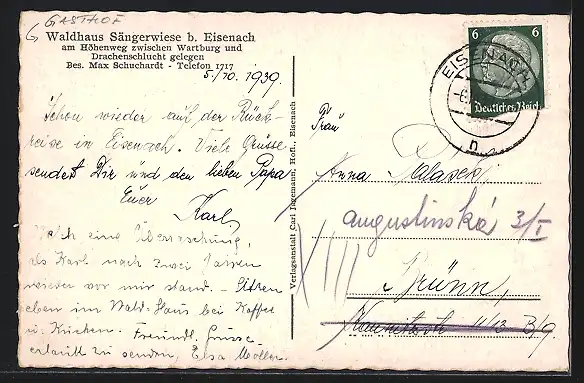 GASTHOF
Waldhaus Sängerwiese b. Eisenach
am Höhenweg zwischen Wartburg und
Drachenschlucht gelegen
Bes. Max Schuchardt - Telefon 1717
5/10. 1939.
Schon wieder auf der Rück-
reise in Eisenach. Viele Grüsse
sendet Dir und den lieben Papa
Euer
Karl
eine Überraschung,
als Karl nach zwei Jahren
wieder vor mir stand. - Sitzen
eben im Wald-Haus bei Kaffee
u. Kuchen. Freundl. Grüsse
erlaubt zu senden, Elsa Möller.
Verlagsanstalt Carl Jagemann, Hofl., Eisenach
6 6
Deutsches Reich
EISENACH
n
Frau
Anna Palasek
augustinská 3/I
XIII
Brünn,
11/13